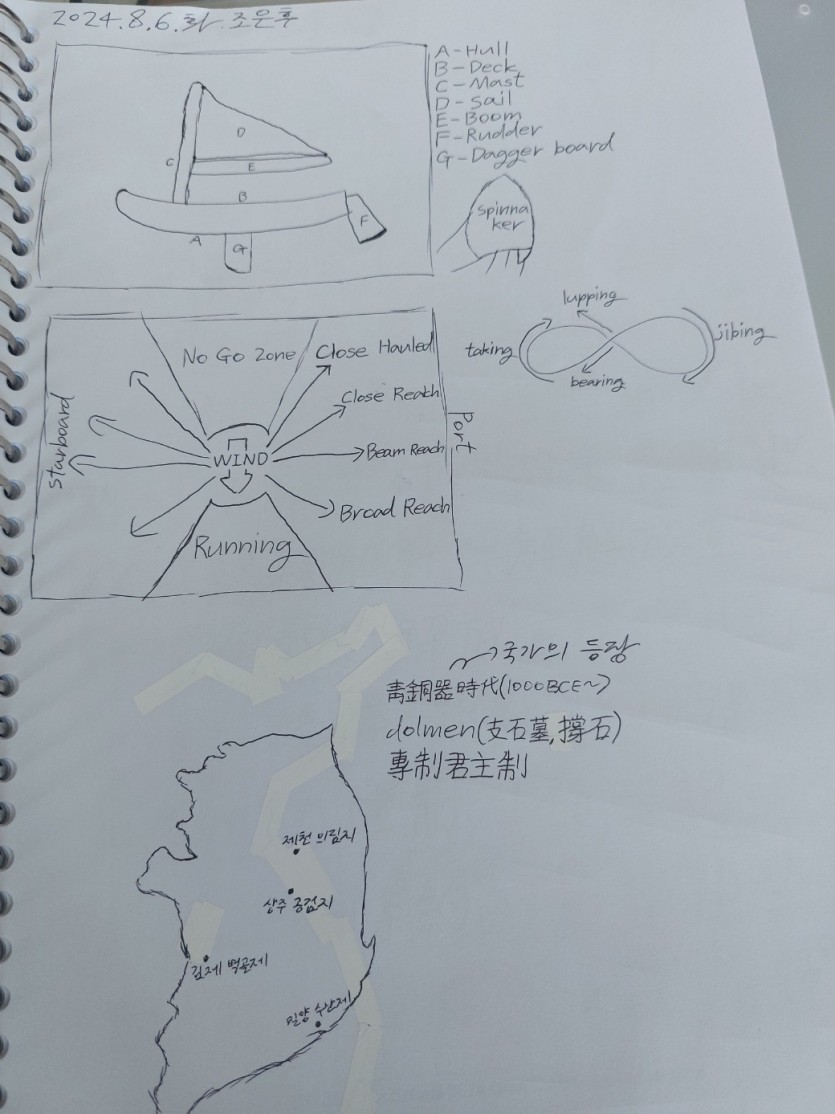 2024.8.6.화.조은후
A-Hull
B-Deck
C-Mast
D-Sail
E-Boom
F-Rudder
G-Dagger board
D
C
E
B
A
G
F
spinna
ker
No Go Zone
Close Hauled
Close Reach
Beam Reach
Broad Reach
Running
WIND
Starboard
Port
lupping
taking
jibing
bearing
→국가의 등장
靑銅器時代(1000BCE~)
dolmen(支石墓,撐石)
專制君主制
제천 의림지
상주 공검지
김제 벽골제
밀양 수산제